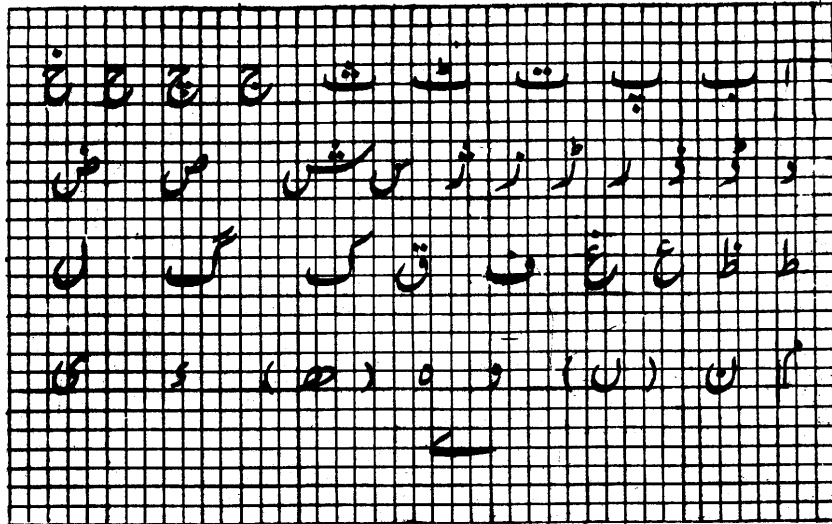 ا ب پ ت ٹ ث ج چ ح خ
د ڈ ذ ر ڑ ز ژ س ش ص ض
ط ظ ع غ ف ق ک گ ل
م ن (ں) و ہ (ھ) ء ی
ے